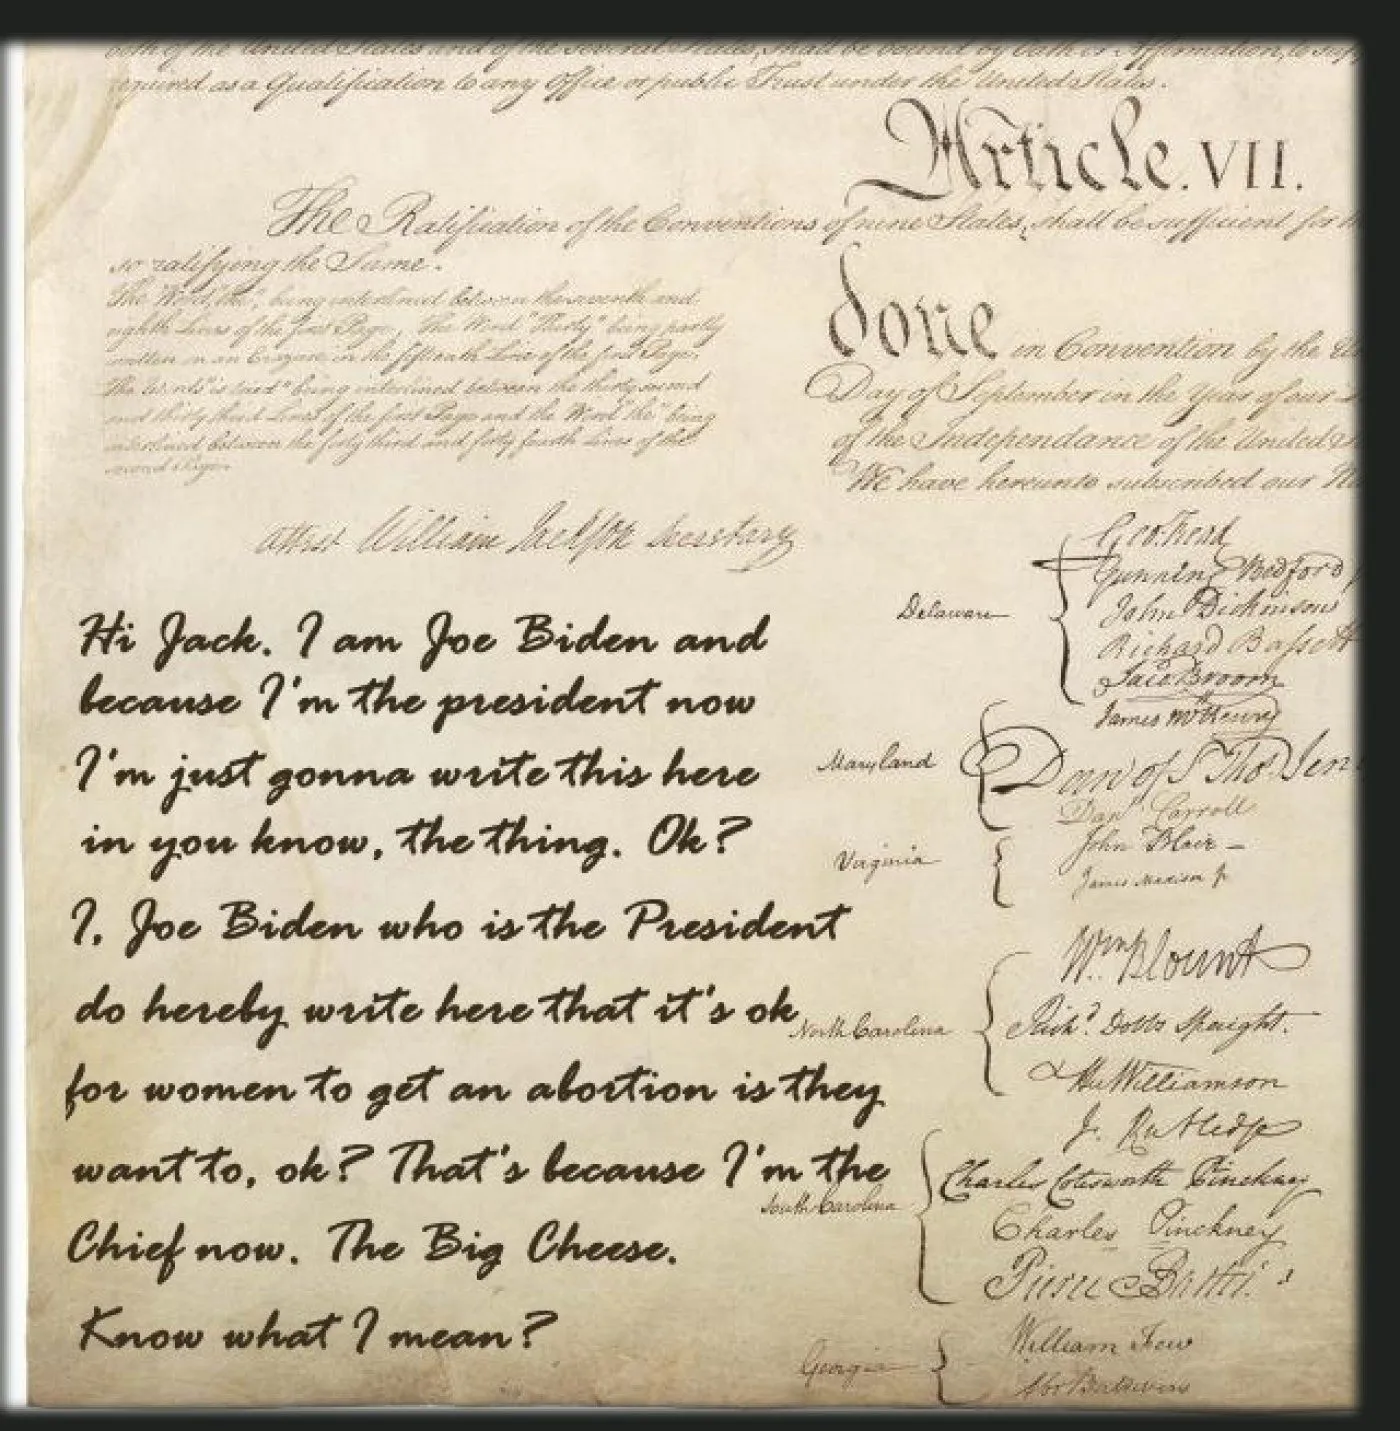 oath of the United States and of the several States, shall be bound by Oath or Affirmation, to
required as a Qualification to any Office or public Trust under the United States.
Article. VII.
The Ratification of the Conventions of nine States, shall be sufficient for
so ratifying the Same.
The Word, "the", being interlined between the seventh and
eighth Lines of the first Page, The Word "Thirty" being partly
written on an Erazure in the fifteenth Line of the first Page,
The Words "is tried" being interlined between the thirty second
and thirty third Lines of the first Page and the Word "the" being
interlined between the forty third and forty fourth Lines of the
second Page.
done in Convention by the
Day of September in the Year of our
of the Independance of the United
We have hereunto subscribed our
attest William Jackson Secretary
Hi Jack. I am Joe Biden and
because I'm the president now
I'm just gonna write this here
in you know, the thing. Ok?
I, Joe Biden who is the President
do hereby write here that it's ok
for women to get an abortion is they
want to, ok? That's because I'm the
Chief now. The Big Cheese.
Know what I mean?
Delaware
Geo: Read
Gunning Bedford
John Dickinson
Richard Bassett
Jaco Broom
Maryland
James McHenry
Dan of St Thos Jen
Danl Carroll
Virginia
John Blair –
James Madison Jr
North Carolina
Wm Blount
Richd Dobbs Spaight.
Hu Williamson
South Carolina
J. Rutledge
Charles Cotesworth Pinckney
Charles Pinckney
Pierce Butler.
Georgia
William Few
Abr Baldwin